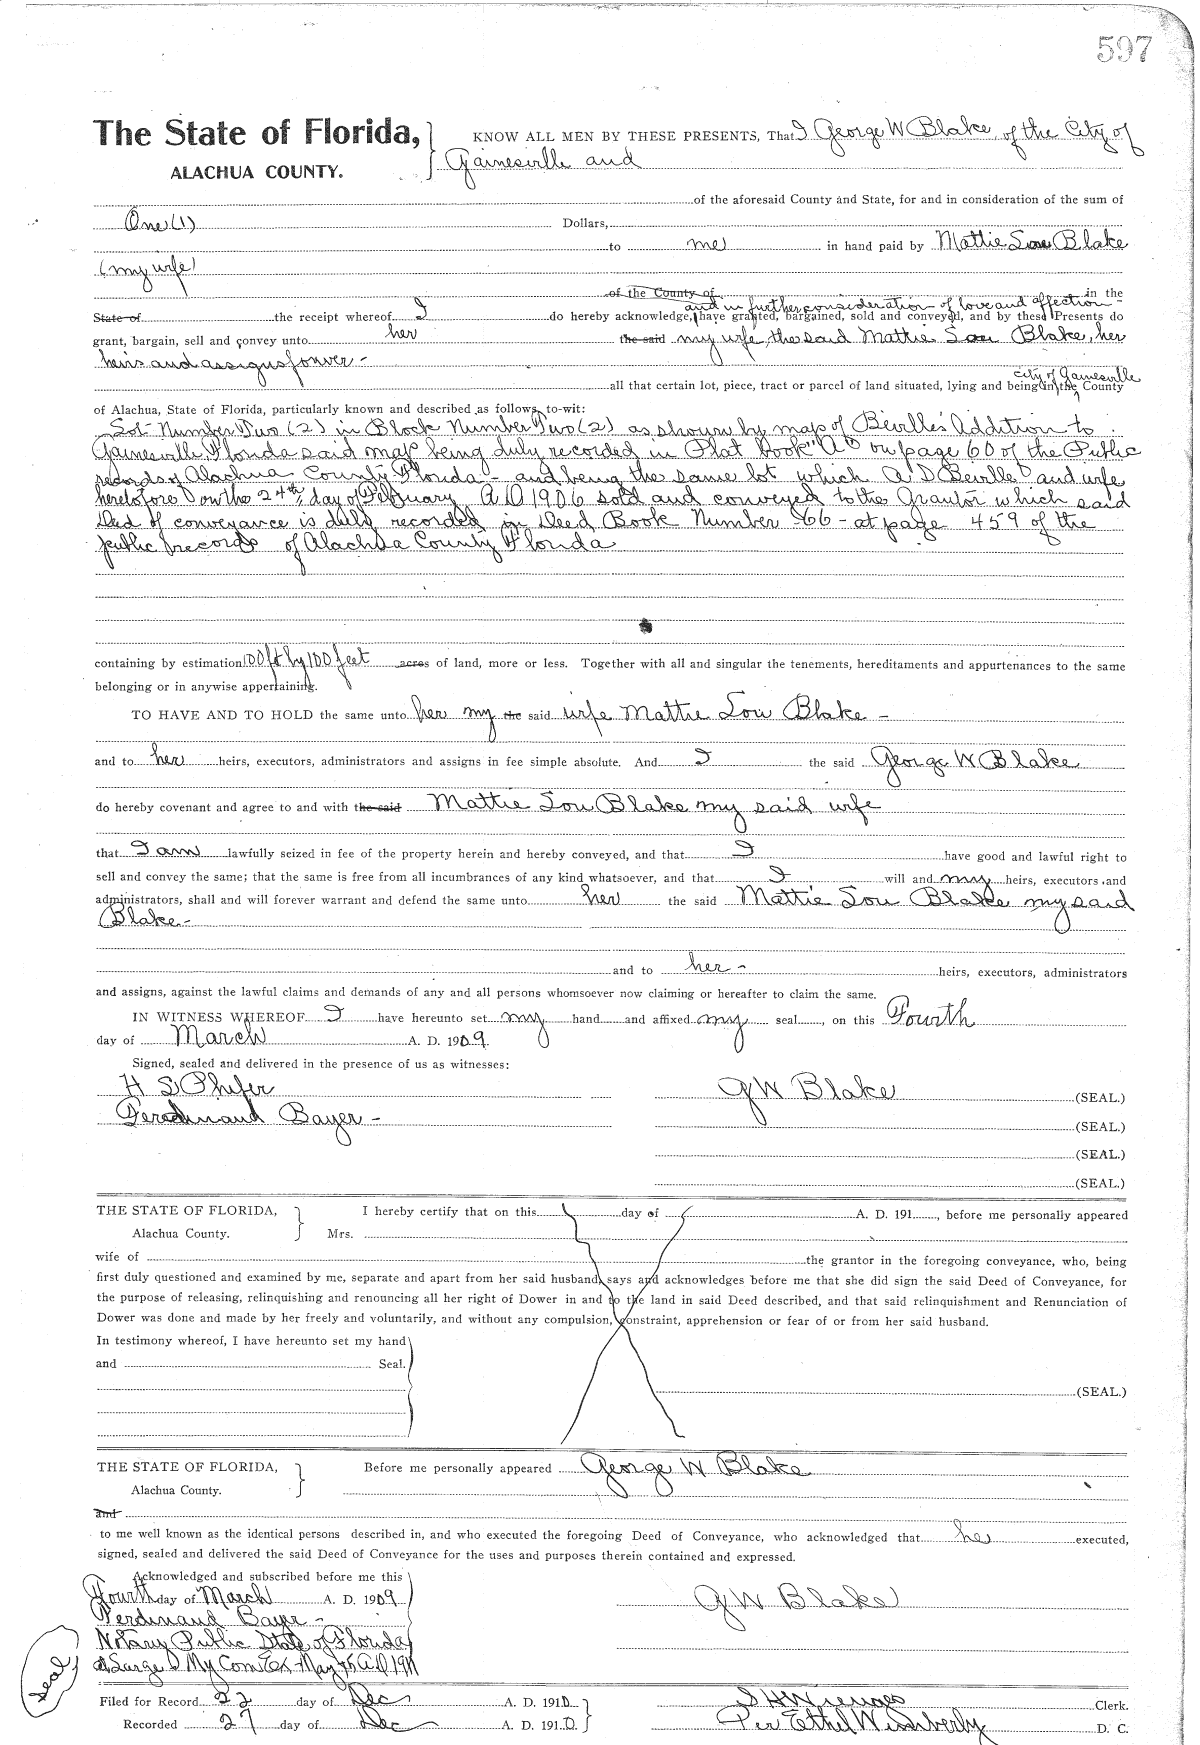 597
The State of Florida, } KNOW ALL MEN BY THESE PRESENTS, That I George W Blake, of the City of
ALACHUA COUNTY. Gainesville and
of the aforesaid County and State, for and in consideration of the sum of
One (1) Dollars,
to me in hand paid by Mattie Lou Blake
(my wife)
of the County of in the
and in further consideration of love and affection
State of the receipt whereof I do hereby acknowledge, have granted, bargained, sold and conveyed, and by these Presents do
grant, bargain, sell and convey unto her the said my wife, the said Mattie Lou Blake, her
heirs and assigns forever -
city of Gainesville
all that certain lot, piece, tract or parcel of land situated, lying and being in the County
of Alachua, State of Florida, particularly known and described as follows, to-wit:
Lot Number Two (2) in Block Number Two (2) as shown by map of Beville's Addition to
Gainesville, Florida said map being duly recorded in Plat Book "A" on page 60 of the Public
records of Alachua County Florida - and being the same lot which A D Beville and wife
heretofore on the 24th day of February A D 1906 sold and conveyed to the Grantor which said
Deed of conveyance is duly recorded in Deed Book Number 66 - at page 459 of the
public records of Alachua County Florida
containing by estimation 100 ft by 100 feet acres of land, more or less. Together with all and singular the tenements, hereditaments and appurtenances to the same
belonging or in anywise appertaining.
TO HAVE AND TO HOLD the same unto her my the said wife Mattie Lou Blake -
and to her heirs, executors, administrators and assigns in fee simple absolute. And I the said George W Blake
do hereby covenant and agree to and with the said Mattie Lou Blake my said wife
that I am lawfully seized in fee of the property herein and hereby conveyed, and that I have good and lawful right to
sell and convey the same; that the same is free from all incumbrances of any kind whatsoever, and that I will and my heirs, executors and
administrators, shall and will forever warrant and defend the same unto her the said Mattie Lou Blake my said
Blake -
and to her - heirs, executors, administrators
and assigns, against the lawful claims and demands of any and all persons whomsoever now claiming or hereafter to claim the same.
IN WITNESS WHEREOF I have hereunto set my hand and affixed my seal, on this Fourth
day of March A. D. 1909.
Signed, sealed and delivered in the presence of us as witnesses:
H S Phifer G W Blake (SEAL.)
Ferdinand Bayer - (SEAL.)
(SEAL.)
(SEAL.)
THE STATE OF FLORIDA, } I hereby certify that on this day of A. D. 191, before me personally appeared
Alachua County. Mrs.
wife of the grantor in the foregoing conveyance, who, being
first duly questioned and examined by me, separate and apart from her said husband, says and acknowledges before me that she did sign the said Deed of Conveyance, for
the purpose of releasing, relinquishing and renouncing all her right of Dower in and to the land in said Deed described, and that said relinquishment and Renunciation of
Dower was done and made by her freely and voluntarily, and without any compulsion, constraint, apprehension or fear of or from her said husband.
In testimony whereof, I have hereunto set my hand
and Seal.
(SEAL.)
THE STATE OF FLORIDA, } Before me personally appeared George W Blake
Alachua County.
and
to me well known as the identical persons described in, and who executed the foregoing Deed of Conveyance, who acknowledged that he executed,
signed, sealed and delivered the said Deed of Conveyance for the uses and purposes therein contained and expressed.
Acknowledged and subscribed before me this
Fourth day of March A. D. 1909 G W Blake
Ferdinand Bayer -
Notary Public State of Florida
at Large My Com Ex May A D 1911
Seal
Filed for Record 22 day of Dec A. D. 1910 S H Wienges Clerk.
Recorded 27 day of Dec A. D. 1910. Per Ethel Wimberly D. C.